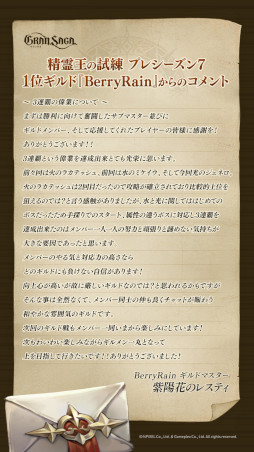 GRANSAGA
精霊王の試練 プレシーズン7
1位ギルド『BerryRain』からのコメント
～ 3連覇の偉業について ～
まずは勝利に向けて奮闘したサブマスター並びに
ギルドメンバー、そして応援してくれたプレイヤーの皆様に感謝を!
ありがとうございます!!
3連覇という偉業を達成出来とても光栄に思います。
前々回は火のラカティッシュ、前回は水のミケイラ、そして今回光のシェネロ。
火のラカティッシュは2回目だったので攻略が確立されており比較的上位を
狙えるのでは?と言う感触がありましたが、水と光に関してははじめての
ボスだったため手探りでのスタート、属性の違うボスに対応し3連覇を
達成出来たのはメンバー一人一人の努力と頑張りと諦めない気持ちが
大きな要因であったと思います。
メンバーのやる気と対応力の高さなら
どのギルドにも負けない自信があります!
向上心が高いが故に厳しいギルドなのでは?と思われるかもですが
そんな事は全然なくて、メンバー同士の仲も良くチャットが賑わう
和やかな雰囲気のギルドです。
次回のギルド戦もメンバー一同いまから楽しみにしています!
次もわいわい楽しみながらギルメン一丸となって
上を目指して行きたいです!!ありがとうございました!
BerryRain ギルドマスター
紫陽花のレスティ